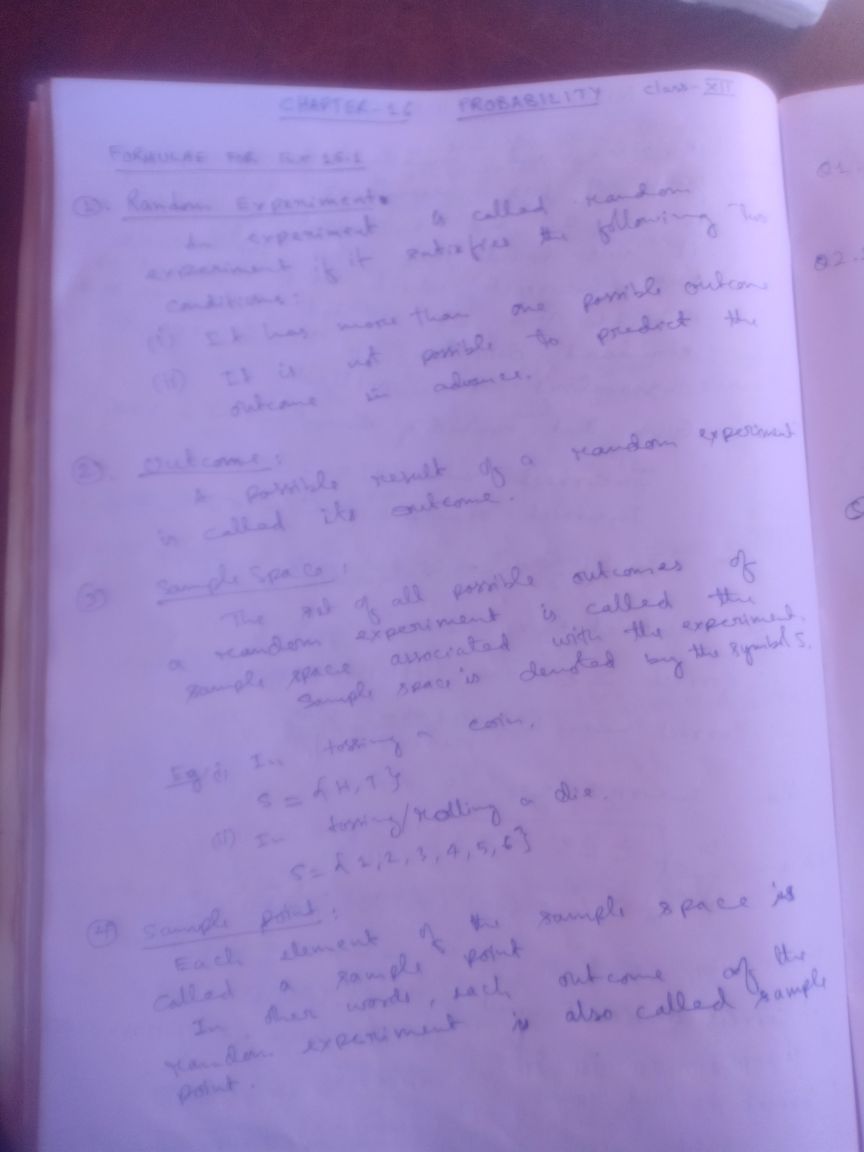 CHAPTER-16 PROBABILITY class-XII
FORMULAE FOR Ex 16.1
(1). Random Experiment
An experiment is called random
experiment if it satisfies the following two
conditions:
(i) It has more than one possible outcome
(ii) It is not possible to predict the
outcome in advance.
(2). Outcome:
A possible result of a random experiment
is called its outcome.
(3) Sample Space:
The set of all possible outcomes of
a random experiment is called the
sample space associated with the experiment.
Sample space is denoted by the symbol S.
Eg (i) In tossing a coin,
S = {H, T}
(ii) In tossing/rolling a die.
S = {1, 2, 3, 4, 5, 6}
(4) Sample point:
Each element of the sample space is
called a sample point
In other words, each outcome of the
random experiment is also called sample
point.
Q1.
Q2.